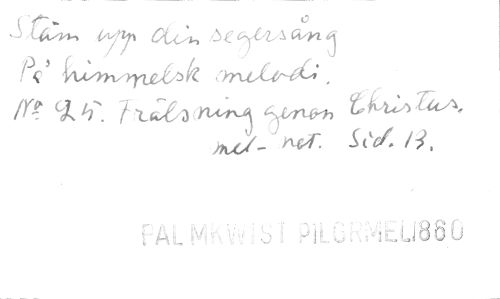 Stäm upp din segersång
På himmelsk melodi.
No 25. Frälsning genom Christus.
mel-not. Sid. 13.
PALMKWIST PILGRMEL1860